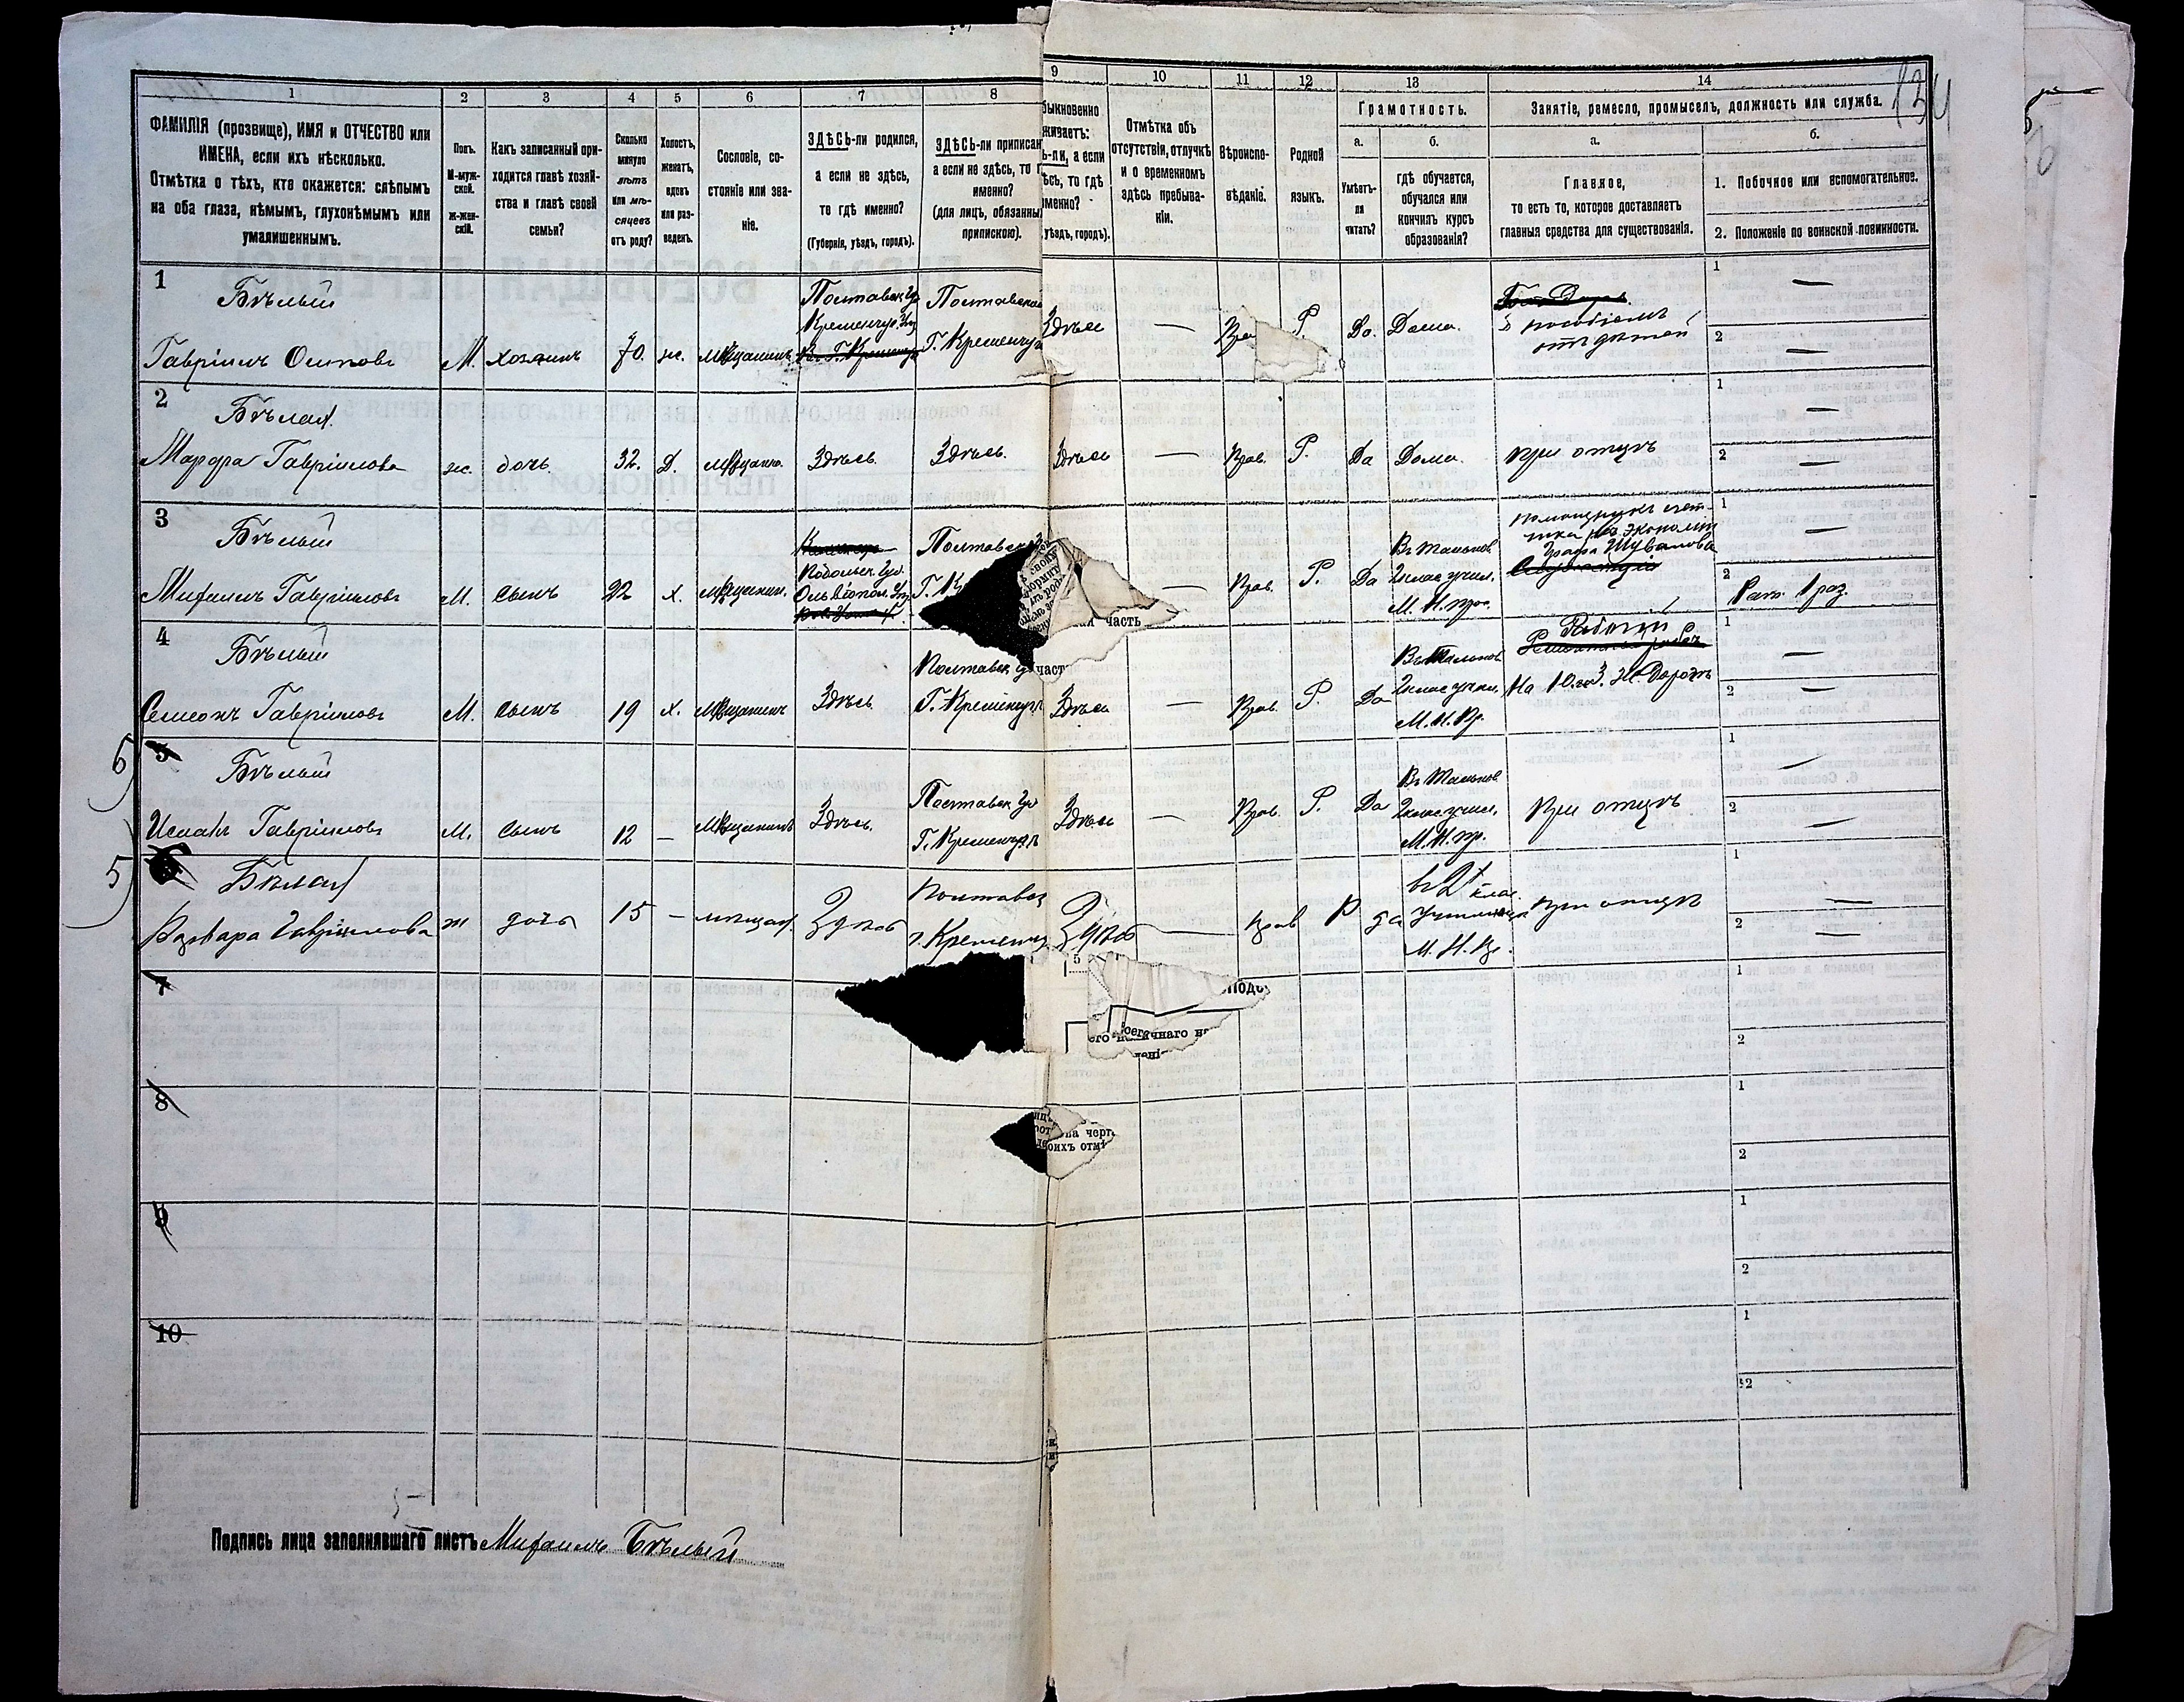 134
1 2 3 4 5 6 7 8 9 10 11 12 13 14
ФАМИЛІЯ (прозвище), ИМЯ и ОТЧЕСТВО или
ИМЕНА, если ихъ нѣсколько.
Отмѣтка о тѣхъ, кто окажется: слѣпымъ
на оба глаза, нѣмымъ, глухонѣмымъ или
умалишеннымъ.
Полъ.
М-муж-
ской.
Ж-жен-
скій.
Какъ записанный при-
ходится главѣ хозяй-
ства и главѣ своей
семьи?
Сколько
минуло
лѣтъ
или мѣ-
сяцевъ
отъ роду?
Холостъ,
женатъ,
вдовъ
или раз-
веденъ.
Сословіе, со-
стояніе или зва-
ніе.
ЗДѢСЬ-ли родился,
а если не здѣсь,
то гдѣ именно?
(Губернія, уѣздъ, городъ).
ЗДѢСЬ-ли приписан
а если не здѣсь, то г
именно?
(для лицъ, обязанны
припискою).
быкновенно
живаетъ:
ь-ли, а если
ѣсь, то гдѣ
менно?
уѣздъ, городъ).
Отмѣтка объ
отсутствіи, отлучкѣ
и о временномъ
здѣсь пребыва-
ніи.
Вѣроиспо-
вѣданіе.
Родной
языкъ.
Грамотность.
а.
Умѣетъ-
ли
читать?
б.
гдѣ обучается,
обучался или
кончилъ курсъ
образованія?
Занятіе, ремесло, промыселъ, должность или служба.
а.
Главное,
то есть то, которое доставляетъ
главныя средства для существованія.
б.
1. Побочное или вспомогательное.
2. Положеніе по воинской повинности.
1
Бѣлый
Гавріилъ Осиповъ
М. хозяинъ 70. ж. Мѣщанинъ
Полтавск Гу
Кременчуг. Уѣз
Полтавской
Г. Кременчуг
Здѣсь — Пра Р Да. Дома.
пособіемъ
отъ дѣтей
1 —
2 —
2
Бѣлая
Марфа Гавріилова
ж. дочь 32. Д. Мѣщанка. Здѣсь. Здѣсь. Здѣсь — Прав. Р. Да Дома. при отцѣ
1 —
2 —
3
Бѣлый
Михаилъ Гавріиловъ
М. сынъ 22 х. Мѣщанин.
Подольск. Губ.
Полтавск
Г. К
— Прав. Р. Да
Въ Тальнов
2клас учил.
М. Н. пр.
помощникъ счет-
чика въ Экономіи
Графа Шувалова
1 —
2 Рат. 1 раз.
4
Бѣлый
Симеонъ Гавріиловъ
М. сынъ 19 х. Мѣщанинъ Здѣсь
Полтавск Гу
Г. Кременчугъ
Здѣсь — Прав. Р. Да
Въ Тальнов
2клас учил.
М. Н. Пр.
Рабочій
На Ю. З. Ж. Дорогѣ
1 —
2 —
6 5
Бѣлый
Исаакъ Гавріиловъ
М. сынъ 12 — Мѣщанинъ Здѣсь.
Полтавск Гу
Г. Кременчугъ
Здѣсь — Прав. Р. Да
Въ Тальнов
2клас учил.
М. Н. пр.
При отцѣ
1 —
2 —
5
Бѣлая
Варвара Гавріилова
ж дочь 15 — мѣщан. Здѣсь
Полтавск
г. Кременчу
Здѣсь — прав Р да
въ 2х клас.
училищѣ
М. Н. Пр.
при отцѣ
1 —
2 —
часть
част
7
5
подо
его наличнаго на
леніе
1
2
8
на черт
воихъ отм
1
2
9
1
2
10
1
2
Подпись лица заполнявшаго листъ Михаилъ Бѣлый